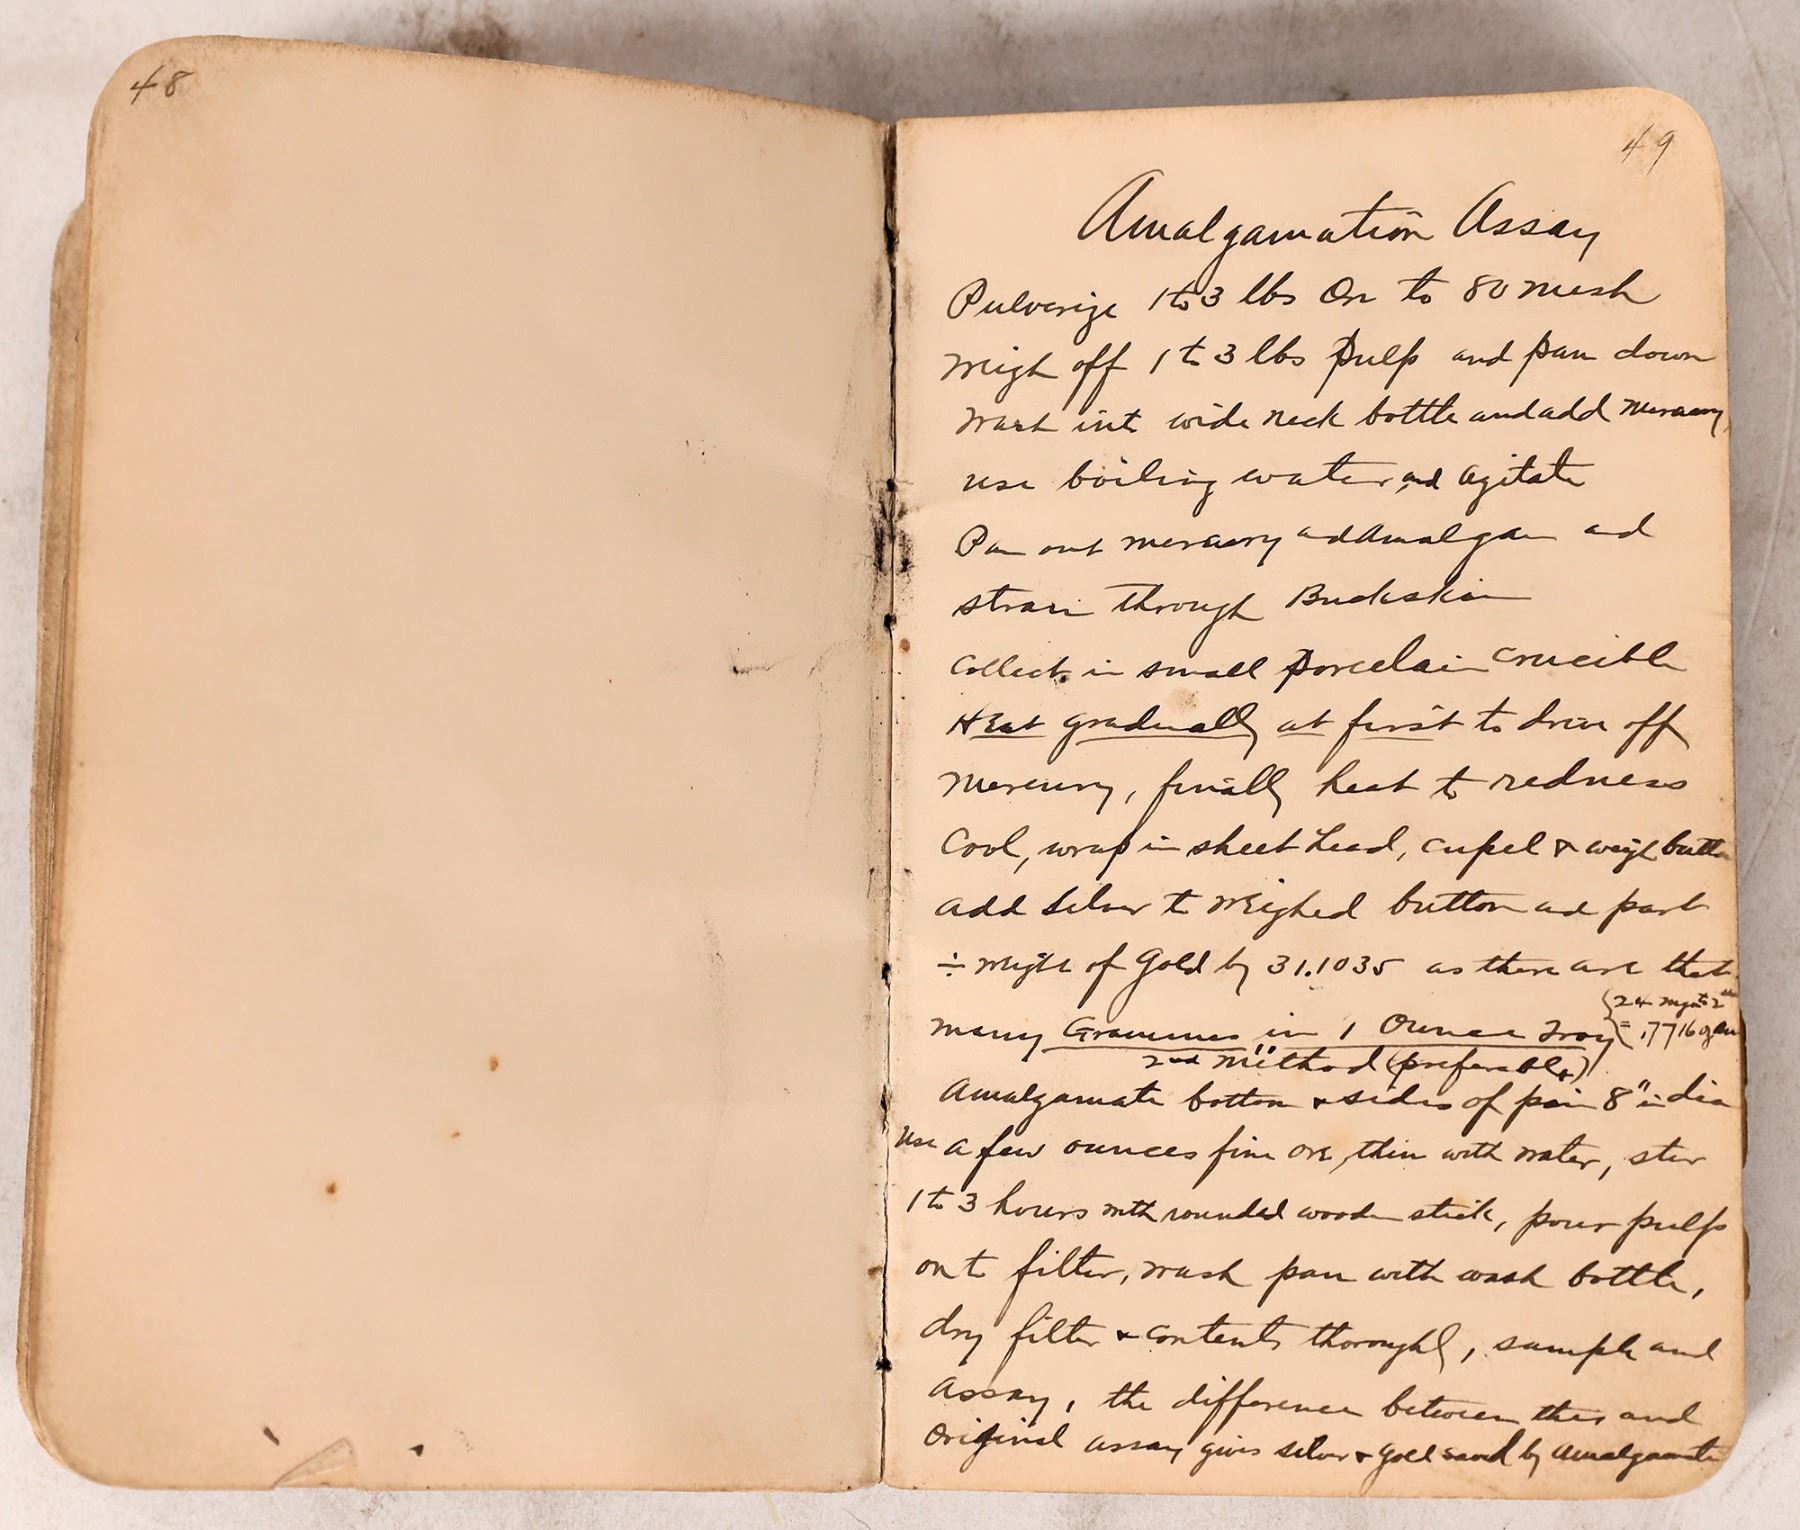 48
49
Amalgamation Assay
Pulverize 1 to 3 lbs Ore to 80 mesh
Weigh off 1 to 3 lbs pulp and pan down
Wash into wide neck bottle and add Mercury,
use boiling water and agitate
Pan out mercury and Amalgam and
strain through Buckskin
Collect in small porcelain crucible
Heat gradually at first to drive off
Mercury, finally heat to redness
Cool, wrap in sheet lead, cupel & weigh button
add Silver to weighed button and part
÷ weight of Gold by 31.1035 as there are that
many Grammes in 1 Ounce Troy
= .7716
2nd Method (preferable)
Amalgamate bottom & sides of pan 8" in dia
Use a few ounces fine ore, thin with water, stir
1 to 3 hours with rounded wooden stick, pour pulp
onto filter, wash pan with wash bottle,
dry filter & contents thoroughly, sample and
Assay, the difference between this and
Original assay gives silver & gold saved by